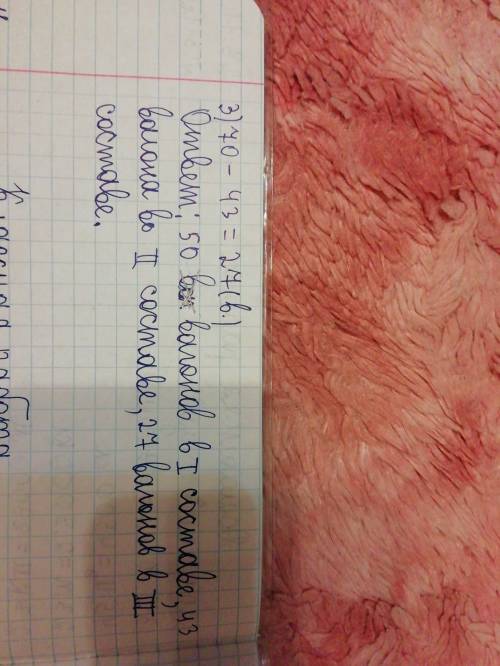 3) 70 - 43 = 27 (в.)
Ответ: 50 вагонов в I составе, 43
вагона во II составе, 27 вагонов в III
составе.
работа